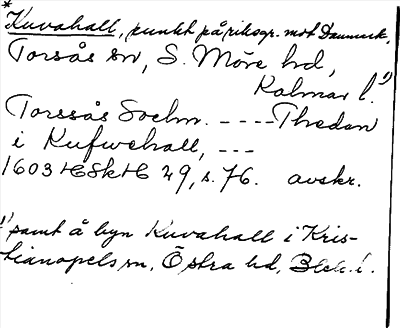 *Kuvahall, punkt på riksgr. mot Danmark,
Torsås sn, S. Möre hd,
Kalmar l.¹)
Torssås Sochn. ---- Thedan
i Kufwehall, ---
1603 HSkH 29, s. 76. avskr.
¹) samt å byn Kuvahall i Kris-
tianopels sn, Östra hd, Blek. l.